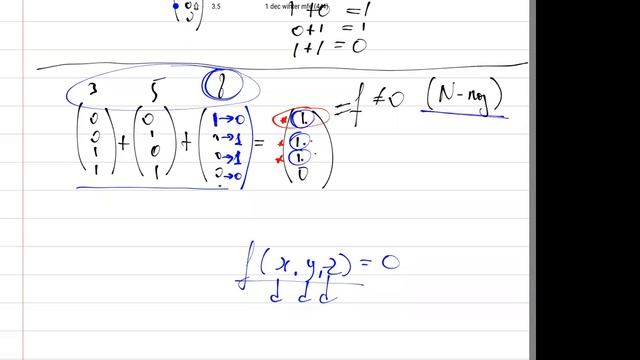 3.5
1 dec winter
1+0 = 1
0+1 = 1
1+1 = 0
3 5 8
(0 0 1 1) + (0 1 0 1) + (1→0 →1 0→1 →0) = (1 1 1 0) = f ≠ 0 (N-поз)
f(x, y, z) = 0
d d d